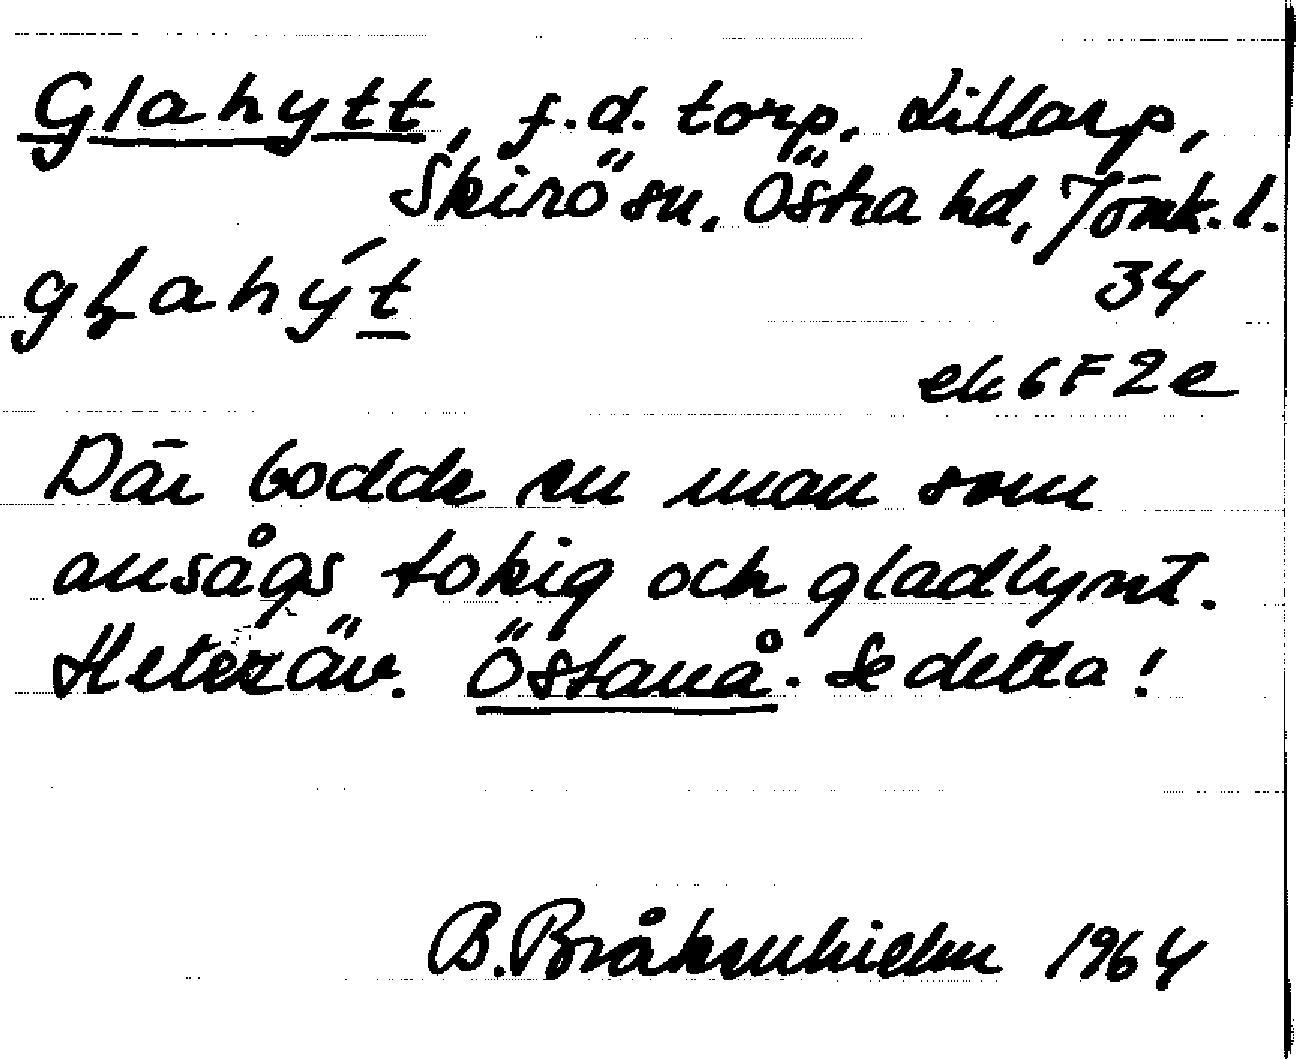 Glahytt, f.d. torp, Lillarp,
Skirö sn, Östra hd, Jönk. l.
glahýt 34
ek 6F2e
Där bodde en man som
ansågs tokig och gladlynt.
Heter äv. Östanå. Se detta!
B. 1964